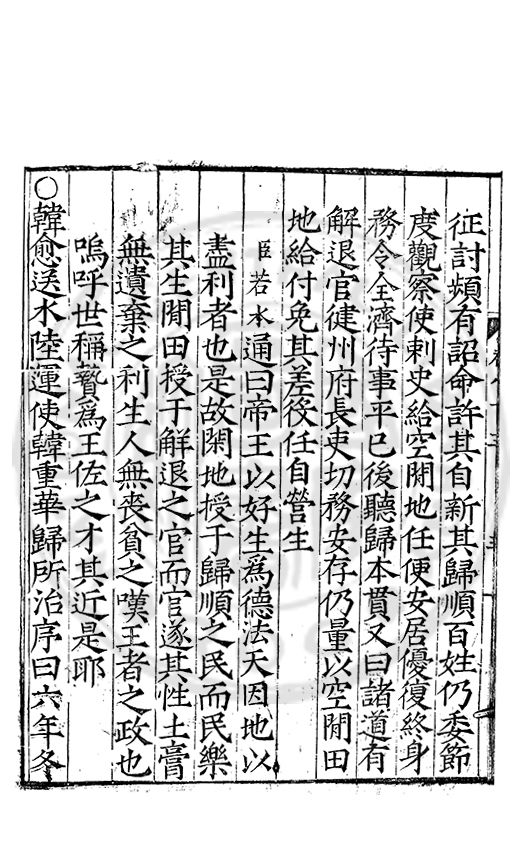 征討頗有詔命許其自新其歸順百姓仍委節
度觀察使刺史給空閒地任便安居優復終身
務令全濟待事平已後聽歸本貫又曰諸道有
解退官健州府長吏切務安存仍量以空閒田
地給付免其差役任自營生
臣若水通曰帝王以好生爲德法天因地以
盡利者也是故閑地授于歸順之民而民樂
其生閒田授于解退之官而官遂其性土膏
無遺棄之利生人無喪貧之嘆王者之政也
嗚呼世稱贄爲王佐之才其近是耶
○韓愈送水陸運使韓重華歸所治序曰六年冬